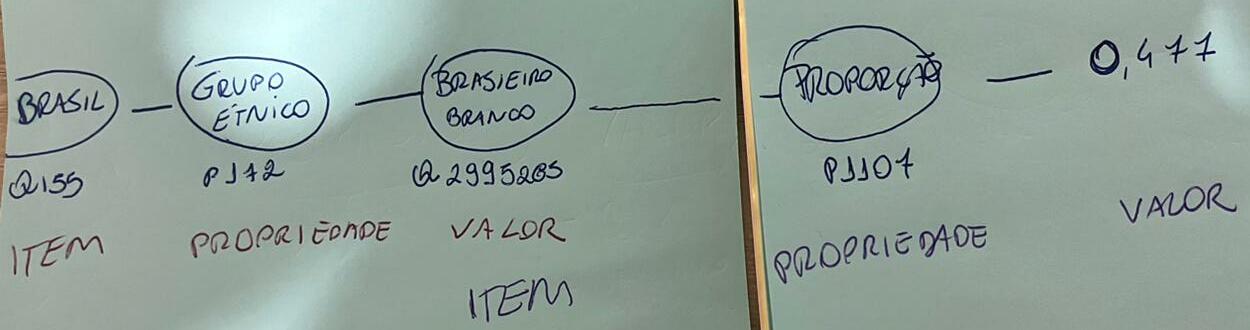 BRASIL
GRUPO
ÉTNICO
BRASIEIRO
BRANCO
PROPORÇÃO
0,477
Q155
P172
Q2995205
P1107
ITEM
PROPRIEDADE
VALOR
ITEM
PROPRIEDADE
VALOR